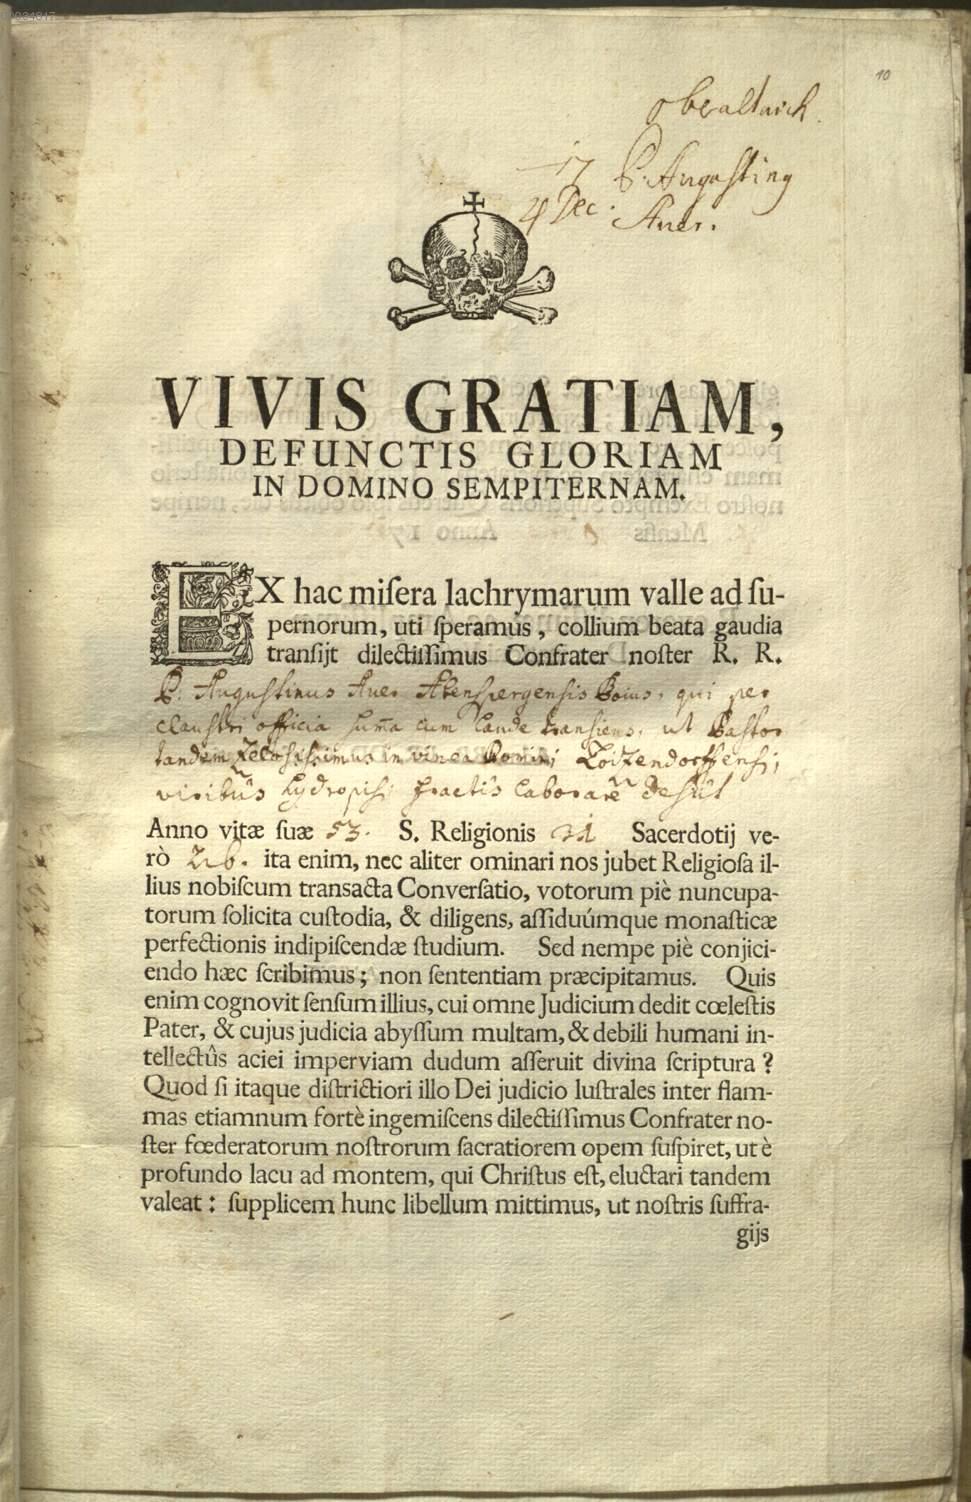 10
Oberaltaich.
17 P. Augustinq
4 Dec. Auer.
VIVIS GRATIAM,
DEFUNCTIS GLORIAM
IN DOMINO SEMPITERNAM.
EX hac miſera lachrymarum valle ad ſu-
pernorum, uti ſperamus, collium beata gaudia
tranſijt dilectiſſimus Confrater noſter R. R.
P. Augustinus Auer Abenspergensis Boius, qui per
claustri officia summa cum laude transiens, ut Pastor
tandem Zelosissimus in vinea Domini Loizendorffensi,
viribus hydropisi fractis laborare desiit
Anno vitæ ſuæ 53. S. Religionis 31 Sacerdotij ve-
rò 26. ita enim, nec aliter ominari nos jubet Religioſa il-
lius nobiſcum transacta Converſatio, votorum piè nuncupa-
torum ſolicita cuſtodia, & diligens, aſſiduúmque monaſticæ
perfectionis indipiſcendæ ſtudium. Sed nempe piè conjici-
endo hæc ſcribimus; non ſententiam præcipitamus. Quis
enim cognovit ſenſum illius, cui omne Judicium dedit cœleſtis
Pater, & cujus judicia abyſſum multam, & debili humani in-
tellectûs aciei imperviam dudum aſſeruit divina ſcriptura?
Quod ſi itaque diſtrictiori illo Dei judicio luſtrales inter flam-
mas etiamnum fortè ingemiſcens dilectiſſimus Confrater no-
ſter fœderatorum noſtrorum ſacratiorem opem ſuſpiret, ut è
profundo lacu ad montem, qui Chriſtus eſt, eluctari tandem
valeat: ſupplicem hunc libellum mittimus, ut noſtris ſuffra-
gijs